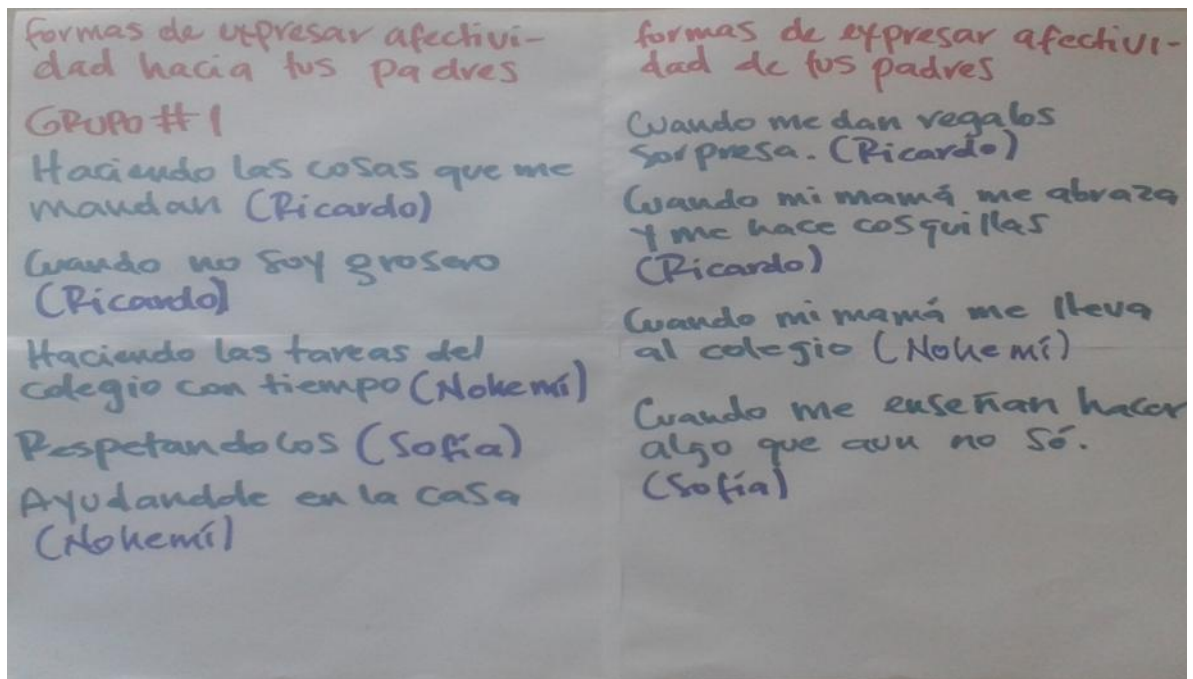 formas de expresar afectivi-
dad hacia tus padres
GRUPO #1
Haciendo las cosas que me
mandan (Ricardo)
Cuando no soy grosero
(Ricardo)
Haciendo las tareas del
colegio con tiempo (Nohemí)
Respetandolos (Sofía)
Ayudandole en la casa
(Nohemí)
formas de expresar afectivi-
dad de tus padres
Cuando me dan regalos
sorpresa. (Ricardo)
Cuando mi mamá me abraza
y me hace cosquillas
(Ricardo)
Cuando mi mamá me lleva
al colegio (Nohemí)
Cuando me enseñan hacer
algo que aun no sé.
(Sofía)